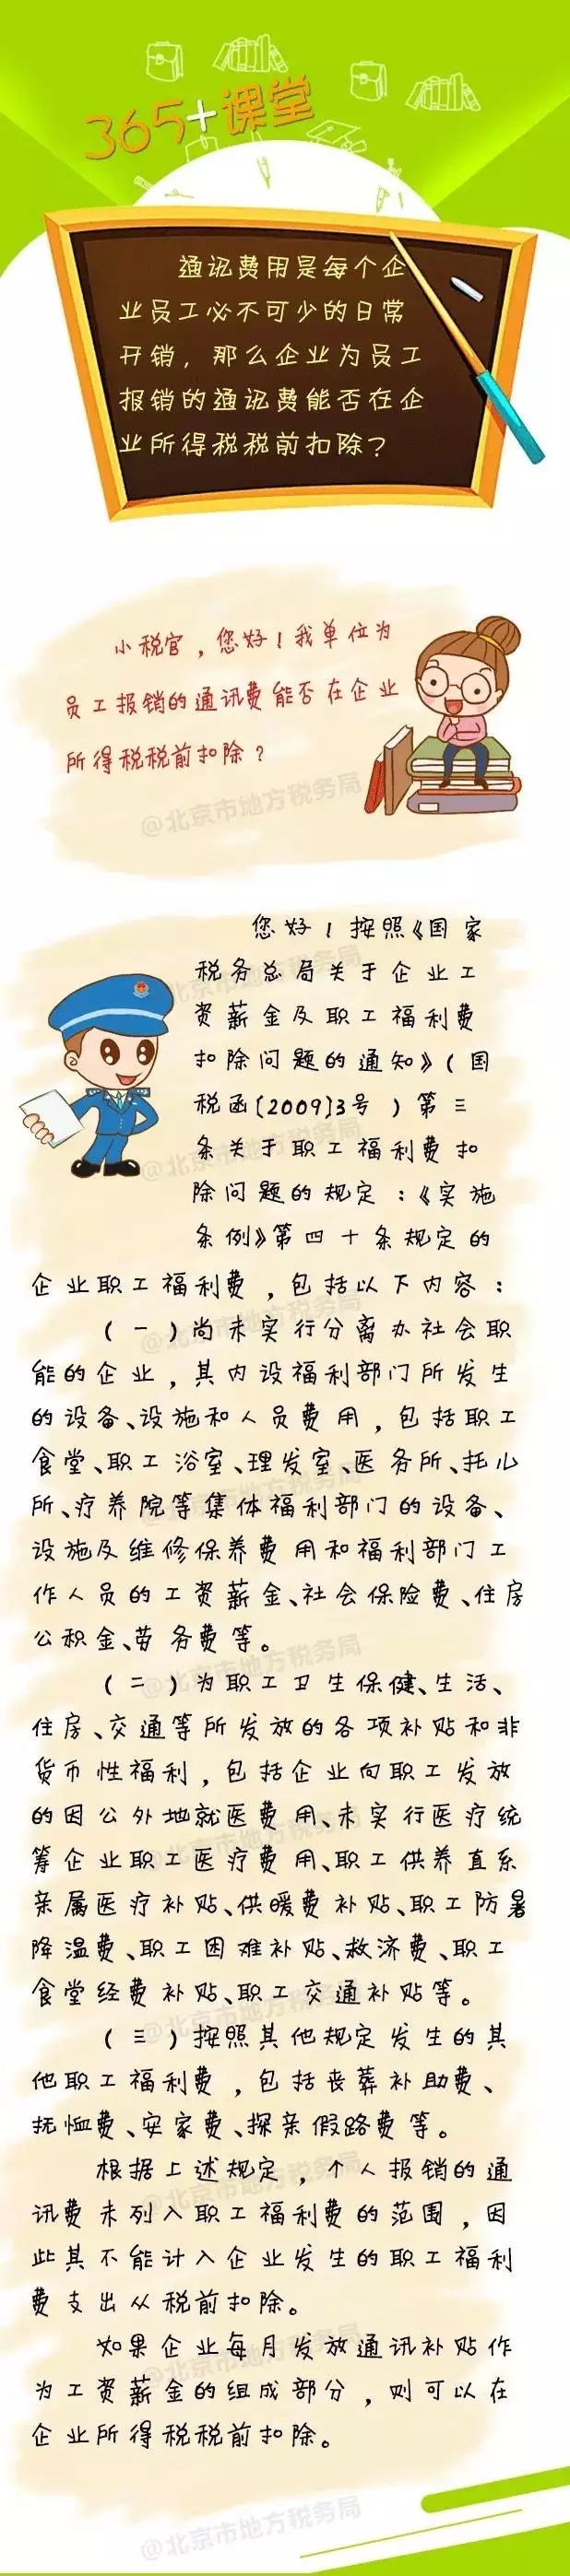 365+课堂
通讯费用是每个企
业员工必不可少的日常
开销，那么企业为员工
报销的通讯费能否在企
业所得税税前扣除？
小税官，您好！我单位为
员工报销的通讯费能否在企业
所得税税前扣除？
@北京市地方税务局
您好！按照《国家
税务总局关于企业工
资薪金及职工福利费
扣除问题的通知》（国
税函[2009]3号）第三
条关于职工福利费扣
除问题的规定：《实施
条例》第四十条规定的
企业职工福利费，包括以下内容：
（一）尚未实行分离办社会职
能的企业，其内设福利部门所发生
的设备、设施和人员费用，包括职工
食堂、职工浴室、理发室、医务所、托儿
所、疗养院等集体福利部门的设备、
设施及维修保养费用和福利部门工
作人员的工资薪金、社会保险费、住房
公积金、劳务费等。
（二）为职工卫生保健、生活、
住房、交通等所发放的各项补贴和非
货币性福利，包括企业向职工发放
的因公外地就医费用、未实行医疗统
筹企业职工医疗费用、职工供养直系
亲属医疗补贴、供暖费补贴、职工防暑
降温费、职工困难补贴、救济费、职工
食堂经费补贴、职工交通补贴等。
（三）按照其他规定发生的其
他职工福利费，包括丧葬补助费、
抚恤费、安家费、探亲假路费等。
根据上述规定，个人报销的通
讯费未列入职工福利费的范围，因
此其不能计入企业发生的职工福利
费支出从税前扣除。
如果企业每月发放通讯补贴作
为工资薪金的组成部分，则可以在
企业所得税税前扣除。
@北京市地方税务局